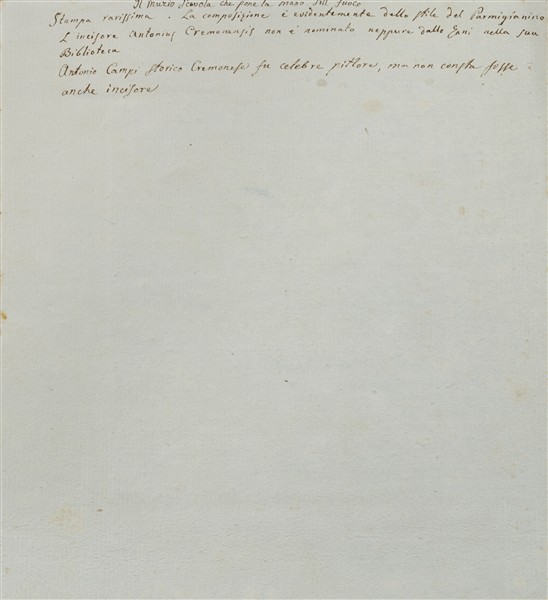 Il Muzio Scevola che pone la mano sul fuoco
Stampa rarissima. La composizione è evidentemente dello stile del Parmigianino.
L incisore Antonius Cremonensis non è nominato neppure dallo Zani nella sua
Biblioteca
Antonio Campi storico Cremonese fu celebre pittore, ma non consta fosse
anche incisore